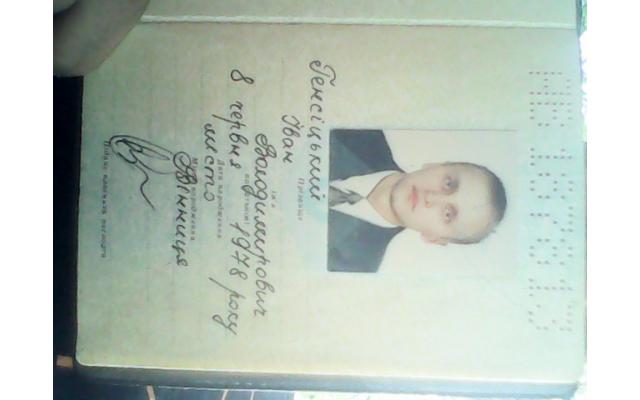 Генсіцький
Прізвище
Іван
Ім'я
Володимирович
по батькові
8 червня 1978 року
Дата народження
місто Вінниця
Місце народження
Підпис власника паспорта